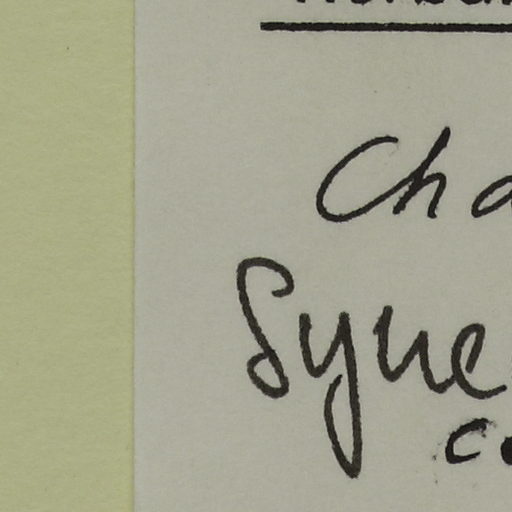 Cha
Syne
co